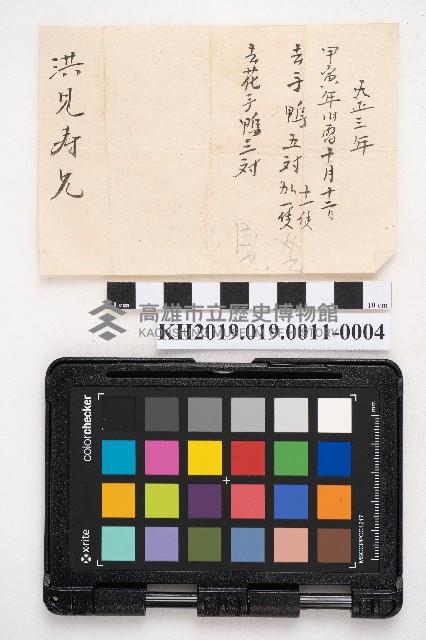 大正三年
甲寅年旧曆十月十二日
去手鴨五対
十一隻
去花手鴨三対
洪見寿兄
1 cm
10 cm
高雄市立歷史博物館
KAOHSIUNG MUSEUM OF HISTORY
KH2019.019.0011-0004
colorchecker
x-rite
mm